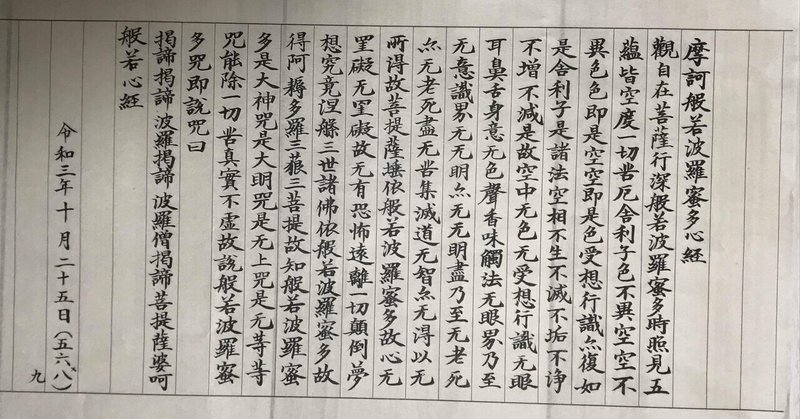 摩訶般若波羅蜜多心經
觀自在菩薩行深般若波羅蜜多時照見五
蘊皆空度一切苦厄舍利子色不異空空不
異色色即是空空即是色受想行識亦復如
是舍利子是諸法空相不生不滅不垢不浄
不增不減是故空中无色无受想行識无眼
耳鼻舌身意无色聲香味觸法无眼界乃至
无意識界无无明亦无无明盡乃至无老死
亦无老死盡无苦集滅道无智亦无得以无
所得故菩提薩埵依般若波羅蜜多故心无
罣礙无罣礙故无有恐怖遠離一切顛倒夢
想究竟涅槃三世諸佛依般若波羅蜜多故
得阿耨多羅三藐三菩提故知般若波羅蜜
多是大神咒是大明咒是无上咒是无等等
咒能除一切苦真實不虛故說般若波羅蜜
多咒即說咒曰
揭諦揭諦波羅揭諦波羅僧揭諦菩提薩婆呵
般若心經
令和三年十月二十五日(五六、八)
九